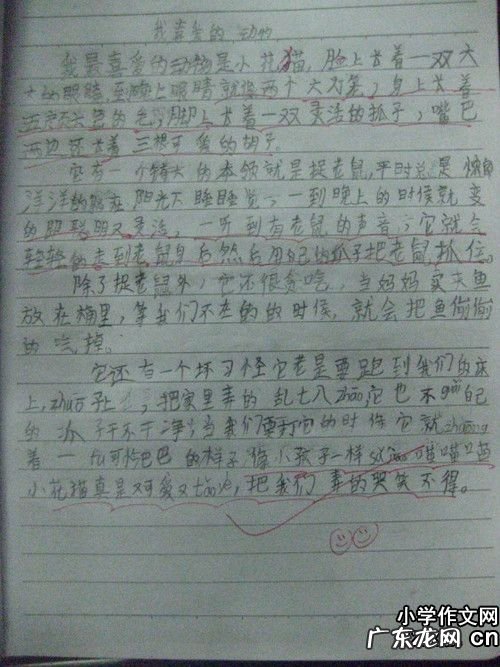 我喜爱的动物
我最喜爱的动物是小花猫，脸上长着一双大
大的眼睛，到晚上眼睛就像两个大灯笼，身上长着
五颜六色的毛，脚上长着一双灵活的抓子，嘴巴
两边还长着三根可爱的胡子。
它有一个特大的本领就是捉老鼠，平时总是懒
洋洋的躺在阳光下睡睡觉，一到晚上的时候就变
的既聪明又灵活，一听到有老鼠的声音，它就会
轻轻的走到老鼠身后然后用自己的抓子把老鼠抓住。
除了捉老鼠外，它还很贪吃，当妈妈买来鱼
放在桶里，等我们不在的的时候，就会把鱼偷偷
的吃掉。
它还有一个坏习怪它老是要跑到我们的床
上，把家里弄的乱七八zhāo它也不自己
的爪子干不干净，当我们要打它的时候它就zhuāng
着一fù可怜巴巴的样子，像小孩子一样喵喵
小花猫真是又可爱又táo，把我们弄的哭笑不得。
小学作文网
广东龙网 cn